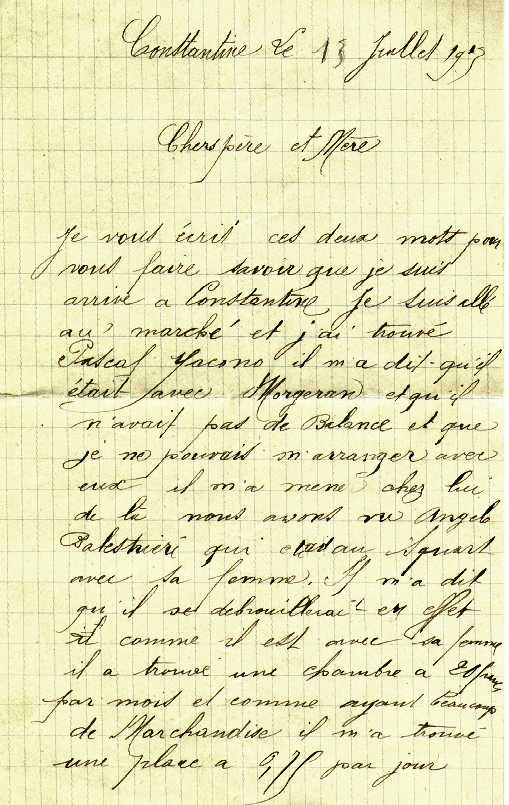 Constantine Le 13 Juillet 1913
Chers père et Mère
Je vous écris ces deux mots pour
vous faire savoir que je suis
arrivé a Constantine Je suis allé
au marché et j'ai trouvé
Pascal Yacono il m'a dit qu'il
était avec Morgeran et qu'il
n'avait pas de Balance et que
je ne pouvais m'arranger avec
eux il m'a mené chez lui
de là nous avons vu Angelo
Balestrieri qui était au Squart
avec sa femme. Il m'a dit
qu'il se debrouillerait en effet
comme il est avec sa femme
il a trouvé une chambre a 20 francs
par mois et comme ayant beaucoup
de Marchandise il m'a trouvé
une place a 0,75 par jour